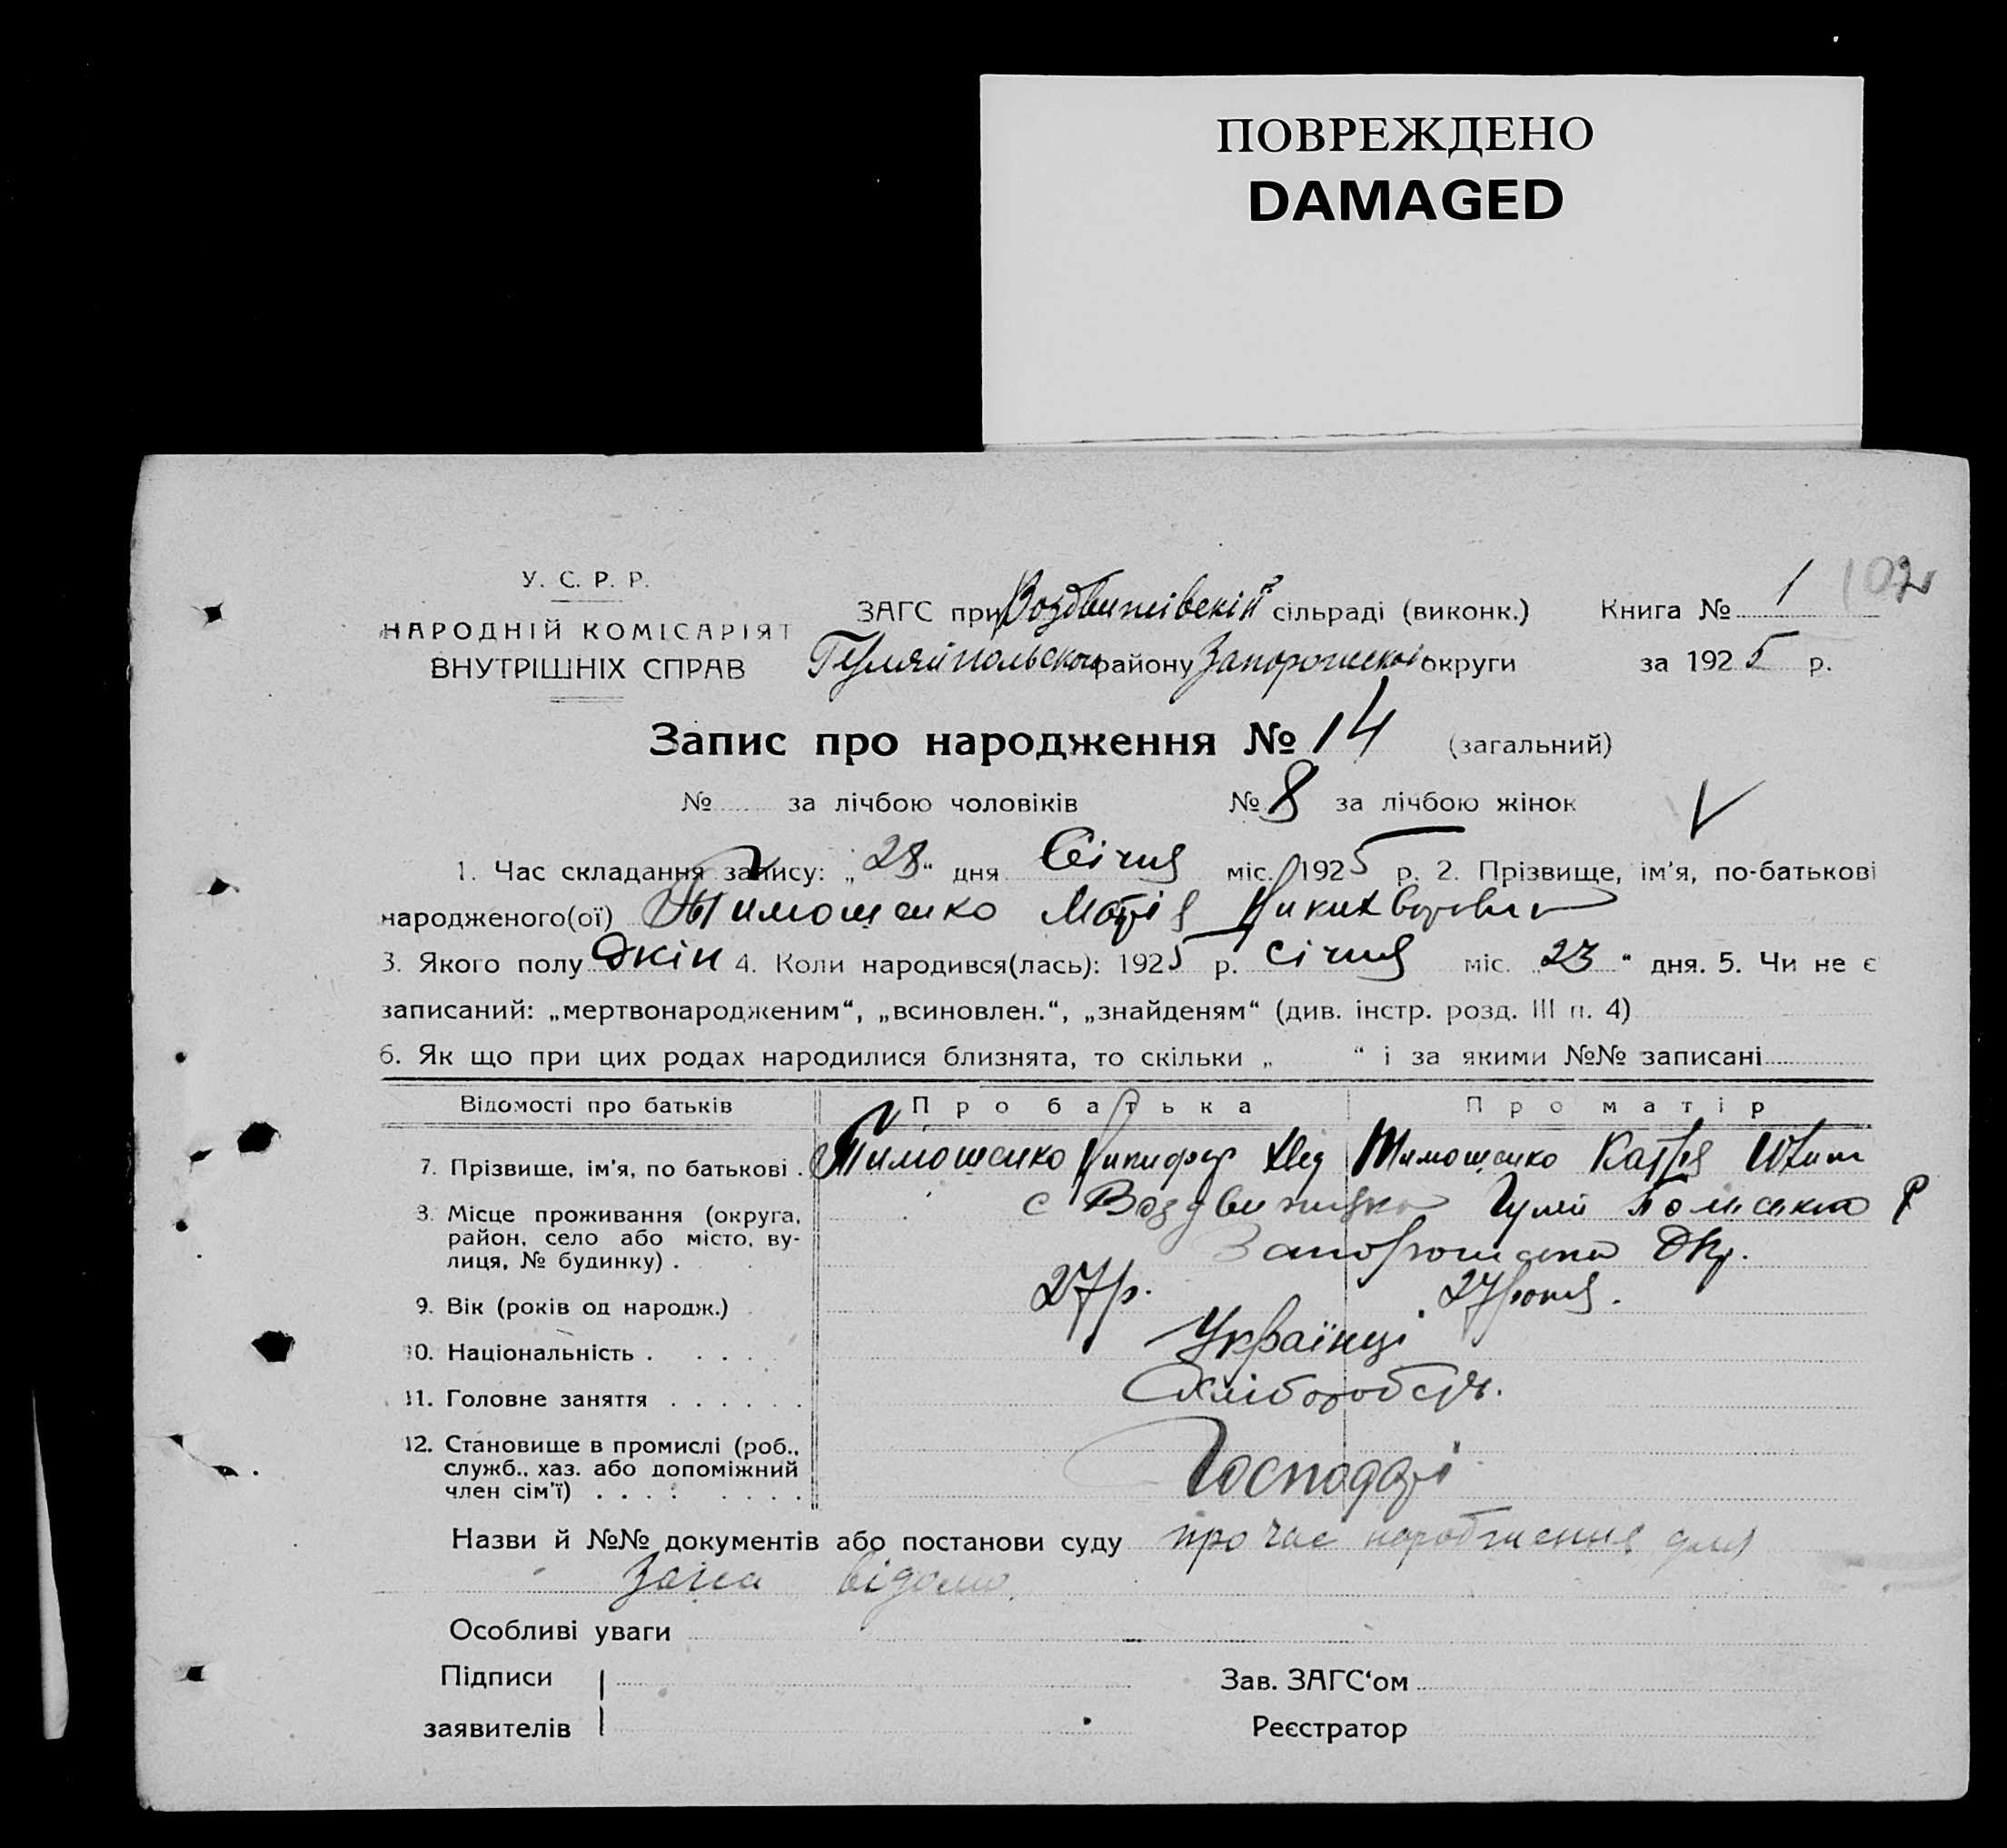 ПОВРЕЖДЕНО
DAMAGED
У. С. Р. Р.
НАРОДНІЙ КОМІСАРІЯТ
ВНУТРІШНІХ СПРАВ
ЗАГС при Воздвижівській сільраді (виконк.)
Гуляйпольского району Запорожскої округи
Книга № 1 102
за 1925 р.
Запис про народження № 14 (загальний)
№ за лічбою чоловіків № 8 за лічбою жінок
1. Час складання запису: „28“ дня Січня міс. 1925 р. 2. Прізвище, ім'я, по-батькові
народженого(ої) Тимошенко
3. Якого полу жін 4. Коли народився(лась): 1925 р. Січня міс. „23“ дня. 5. Чи не є
записаний: „мертвонародженим“, „всиновлен.“, „знайденям“ (див. інстр. розд. III п. 4)
6. Як що при цих родах народилися близнята, то скільки „ “ і за якими №№ записані
Відомості про батьків Про батька Про матір
7. Прізвище, ім'я, по батькові . Тимошенко Никифор Тимошенко Катря
8. Місце проживання (округа, район, село або місто, вулиця, № будинку) . с Воздвижнука Гуляй Р
Запорожська Окр.
9. Вік (років од народж.) 27р. 27 років.
10. Національність . . . . . Українці
11. Головне заняття . . . . . . Хлібороб
12. Становище в промислі (роб., служб., хаз. або допоміжний член сім'ї) . . . . . . . . Господарі
Назви й №№ документів або постанови суду про час народження для
Загса відомо.
Особливі уваги
Підписи
заявителів
Зав. ЗАГС‘ом
Реєстратор